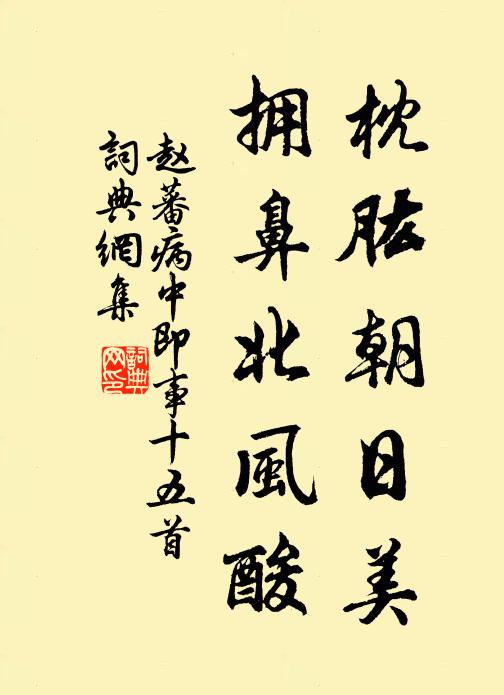 枕肱朝日美
拥鼻北風酸
赵蕃病中即事十五首
詞典網集
詞典网印